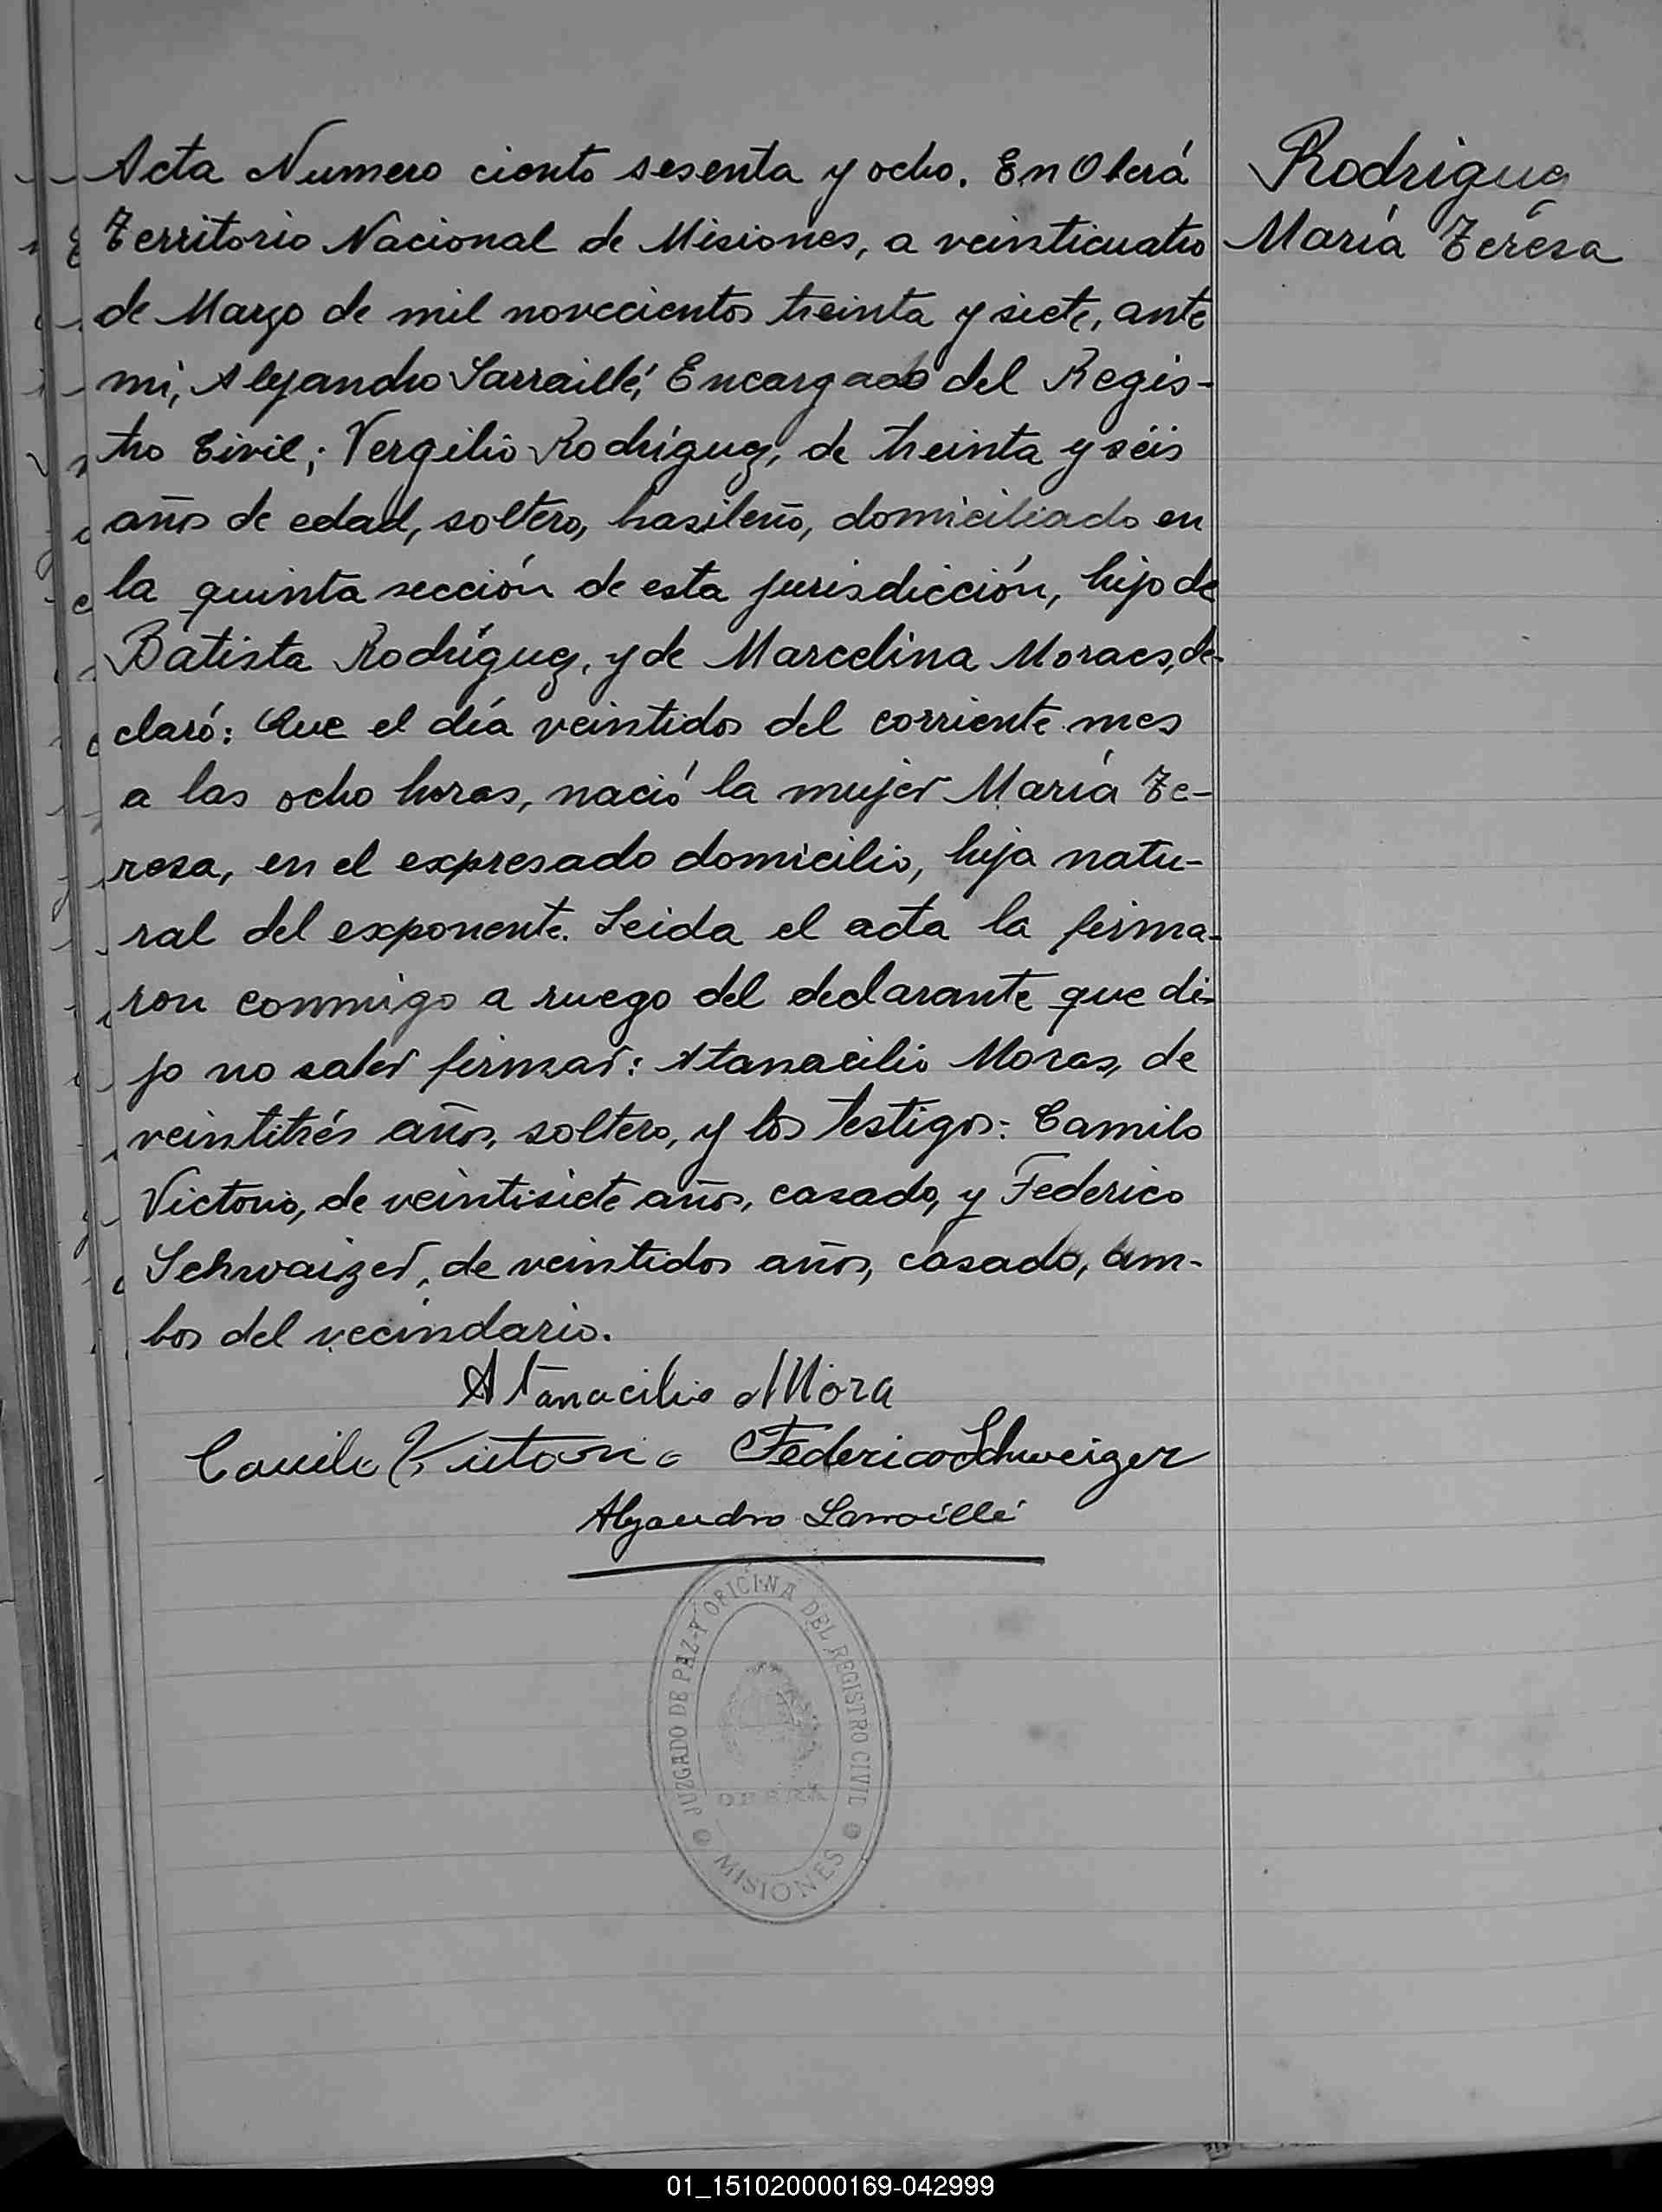 Acta Numero ciento sesenta y ocho. En Oberá
Territorio Nacional de Misiones, a veinticuatro
de Marzo de mil novecientos treinta y siete, ante
mi, Alejandro Sarraillé, Encargado del Regis-
tro Civil; Vergilio Rodríguez, de treinta y seis
años de edad, soltero, brasileño, domiciliado en
la quinta sección de esta jurisdicción, hijo de
Batista Rodríguez, y de Marcelina Moraes, de-
claró: Que el día veintidos del corriente mes
a las ocho horas, nació la mujer María Te-
resa, en el expresado domicilio, hija natu-
ral del exponente. Leida el acta la firma-
ron conmigo a ruego del declarante que di-
jo no saber firmar: Atanacilio Moras, de
veintitrés años, soltero, y los testigos: Camilo
Victorio, de veintisiete años, casado, y Federico
Schwaizer, de veintidos años, casado, am-
bos del vecindario.
Atanacilio Mora
Camilo Victorio Federico Schweizer
Alejandro Sarraillé
Rodríguez
María Teresa
JUZGADO DE PAZ Y OFICINA DEL REGISTRO CIVIL
OBERÁ
MISIONES
01_151020000169-042999